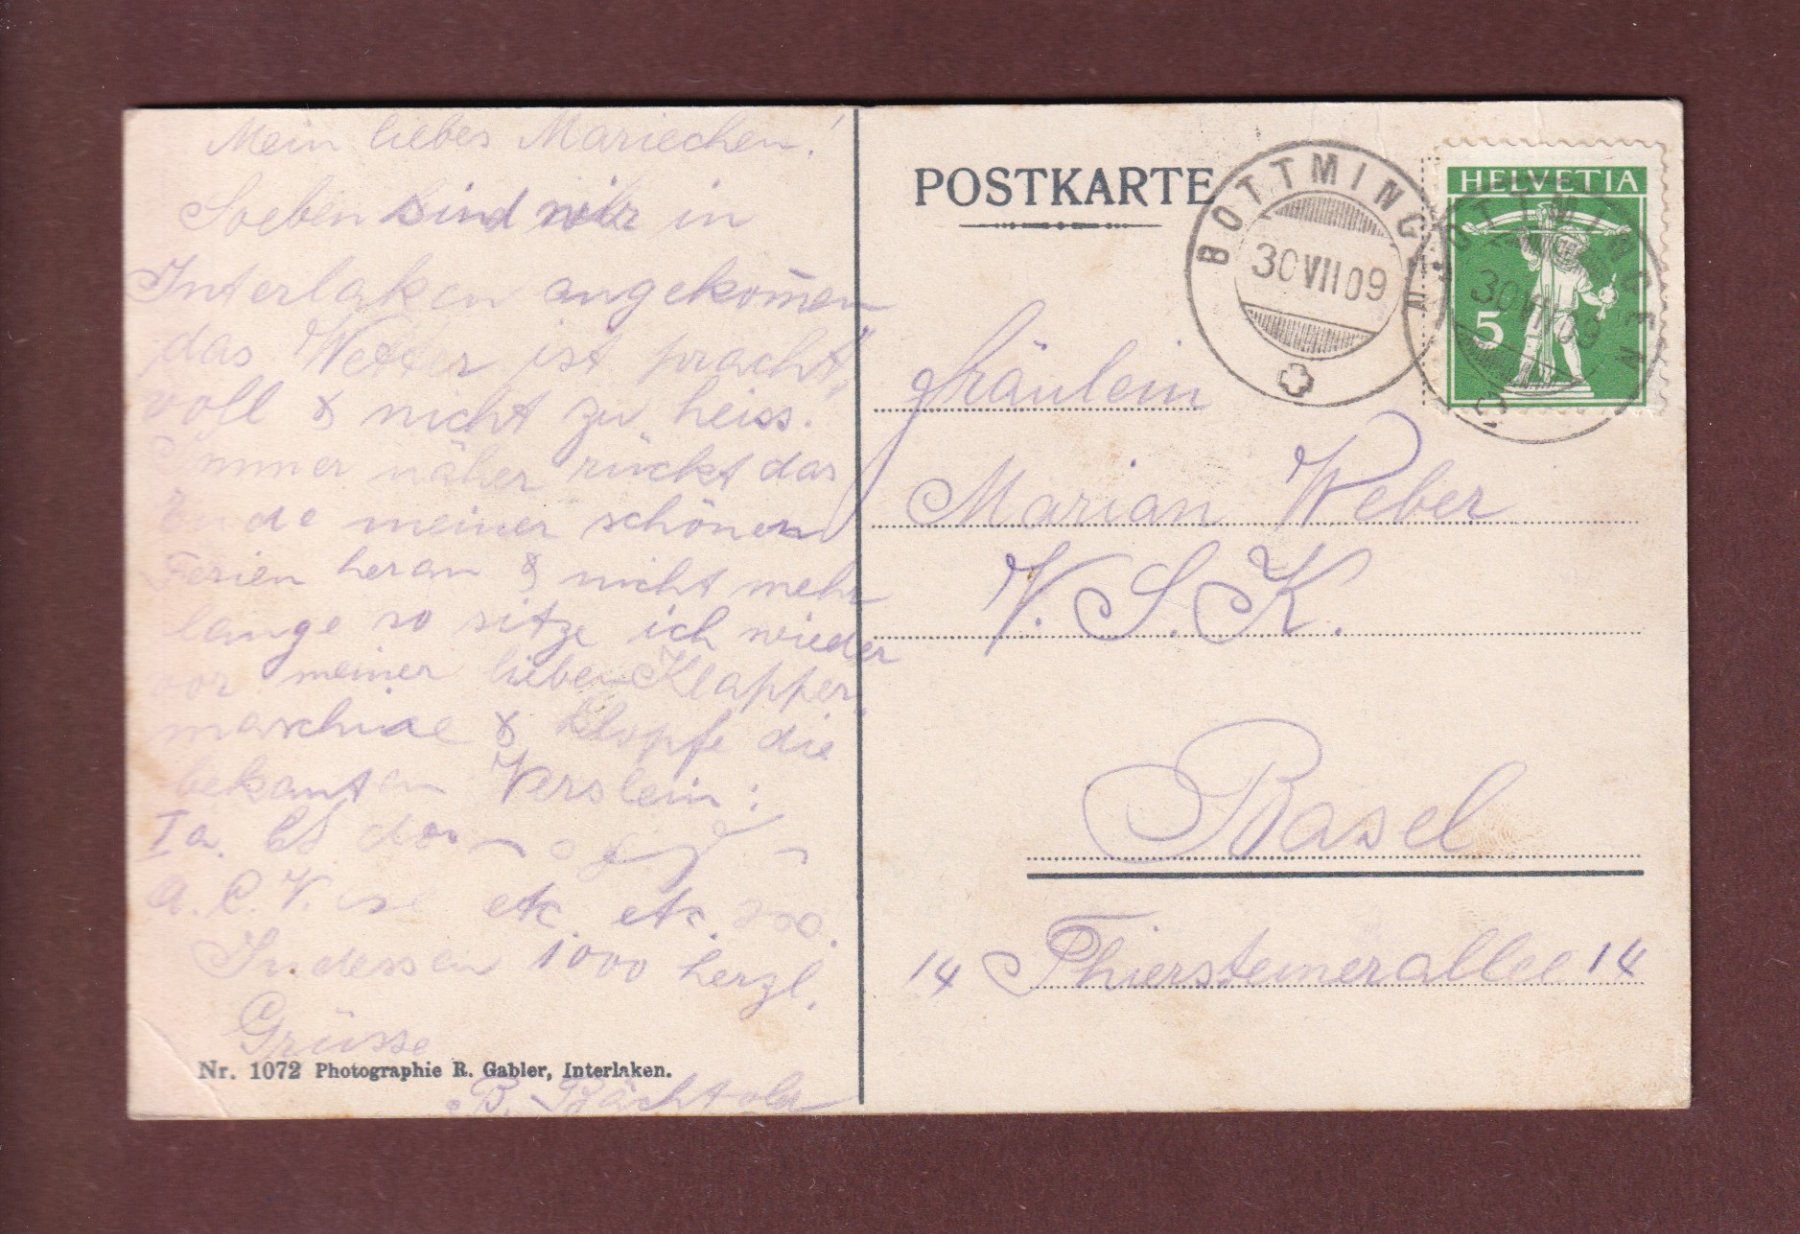 Mein liebes Mariechen!
Soeben sind wir in
Interlaken angekom̄en
das Wetter ist pracht„
voll & nicht zu heiss.
Immer näher rückt das
Ende meiner schönen
Ferien heran & nicht mehr
lange so sitze ich wieder
vor meiner lieben Klapper„
maschine & klopfe die
bekanten Verslein:
Ia.
a. C. V. etc. etc.
Indessen 1000 herzl.
Grüsse
B. Bächtold
Nr. 1072 Photographie R. Gabler, Interlaken.
POSTKARTE
BOTTMINGEN
30 VII 09
HELVETIA
5
BOTTMINGEN
30 VII 09
Fräulein
Marian Weber
V. S. K.
Basel
14 Thiersteinerallee 14